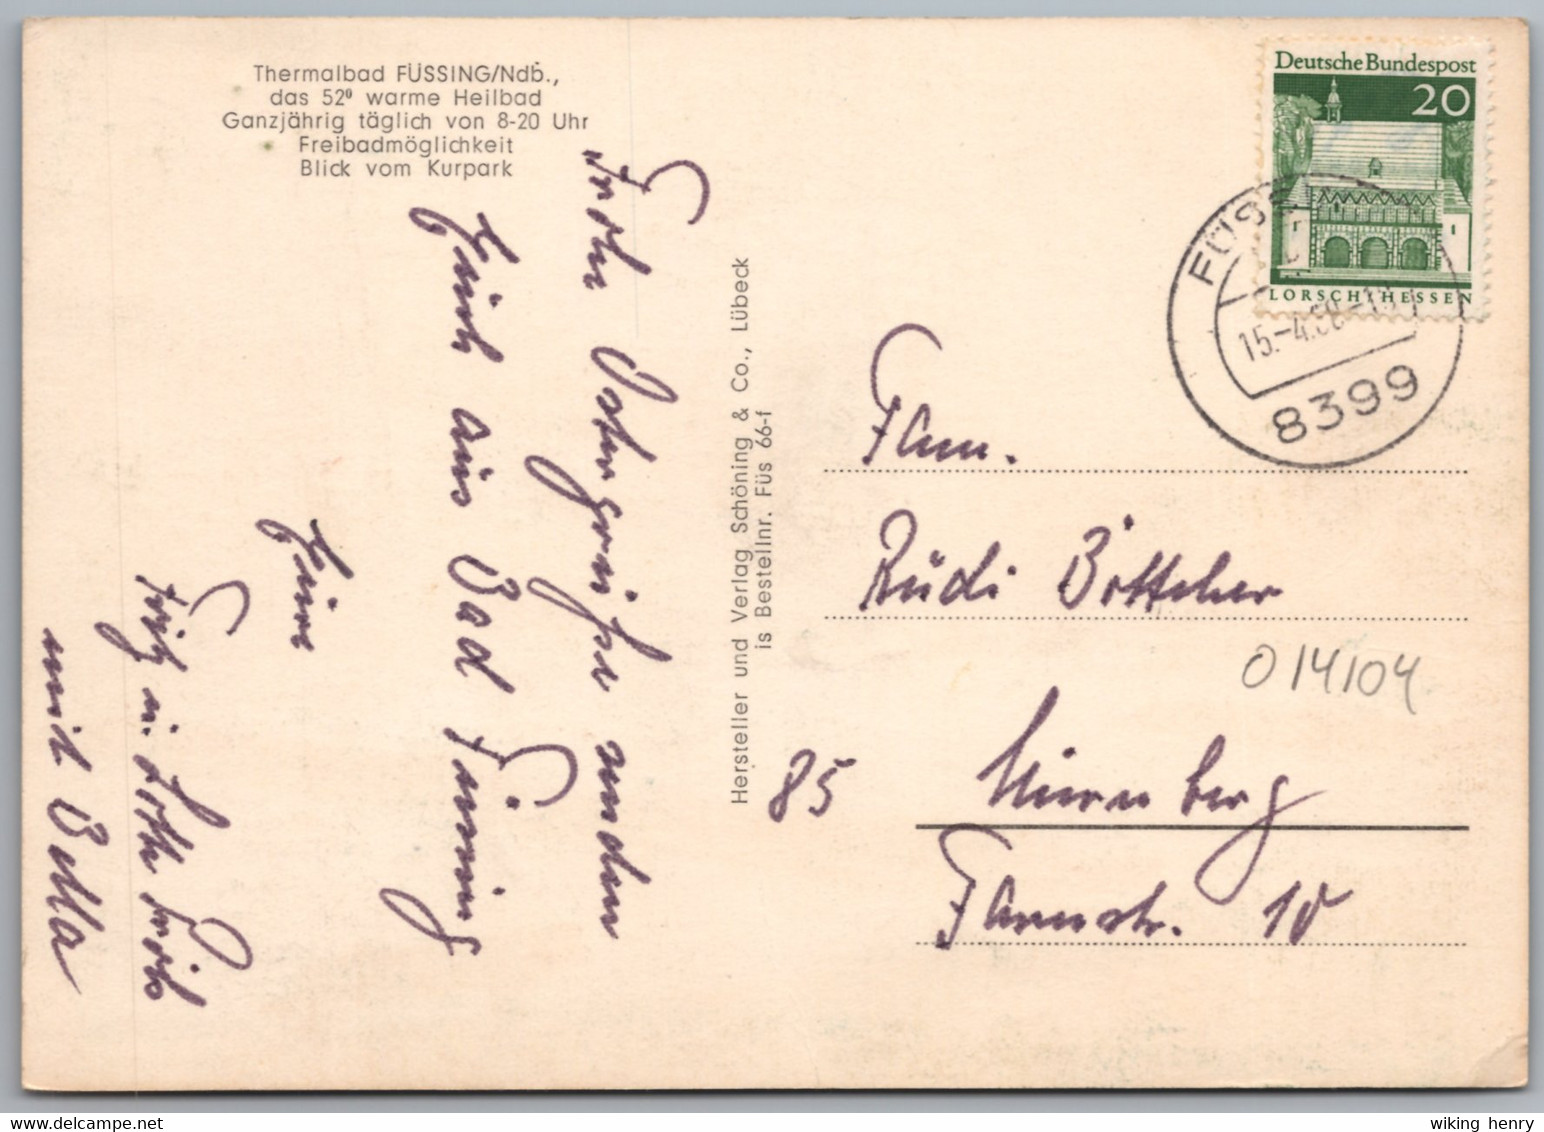 Thermalbad FÜSSING/Ndb.,
das 52° warme Heilbad
Ganzjährig täglich von 8-20 Uhr
Freibadmöglichkeit
Blick vom Kurpark
Frohe Ostergrüße senden
Euch aus Bad Füssing
Eure
Fritz u. Lotte
mit Bella
Hersteller und Verlag Schöning & Co., Lübeck
is Bestellnr. Füs 66-f
Deutsche Bundespost
20
LORSCH/HESSEN
FÜSS
15.-4.68-18
8399
Fam.
Rudi Böttcher
014104
85 Nürnberg
Farnstr. 10
wiking henry